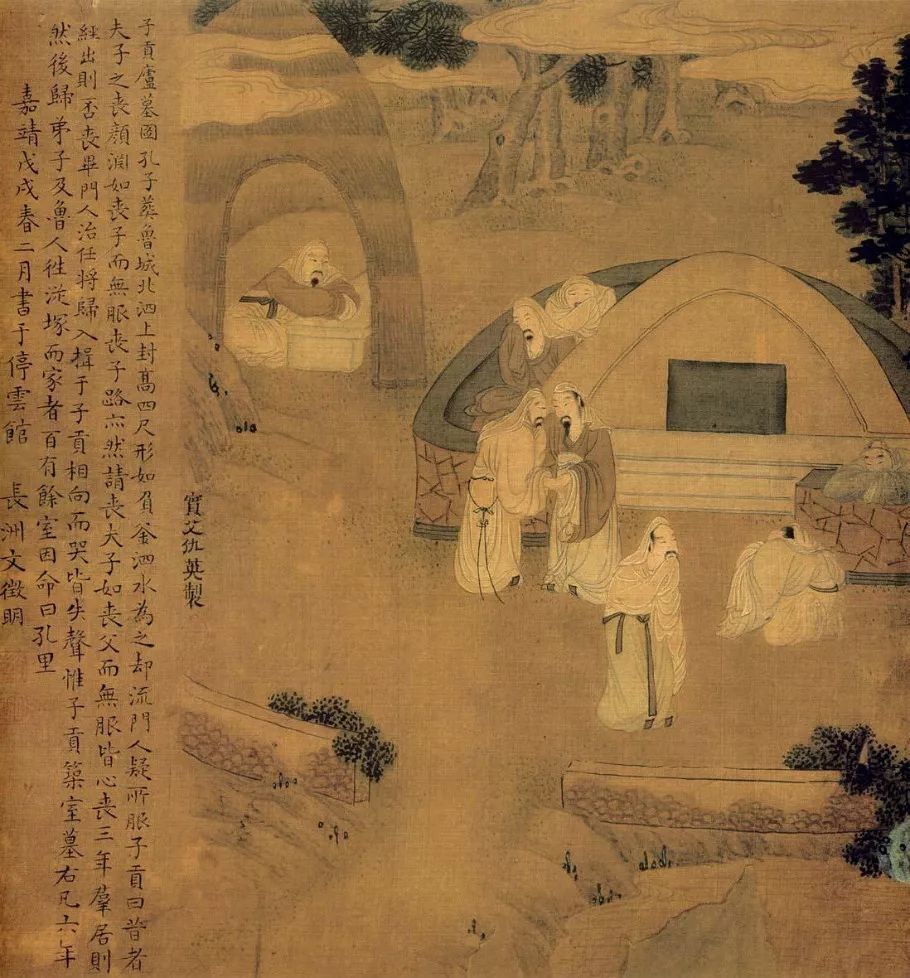 子貢廬墓圖孔子葬魯城北泗上封高四尺形如負釜泗水為之却流門人疑所服子貢曰昔者
夫子之喪顏淵如喪子而無服喪子路亦然請喪夫子如喪父而無服皆心喪三年羣居則
絰出則否喪畢門人治任將歸入揖于子貢相向而哭皆失聲惟子貢築室墓右凡六年
然後歸弟子及魯人往從塚而家者百有餘室因命曰孔里
嘉靖戊戌春二月書于停雲館 長洲文徵明
實父仇英製